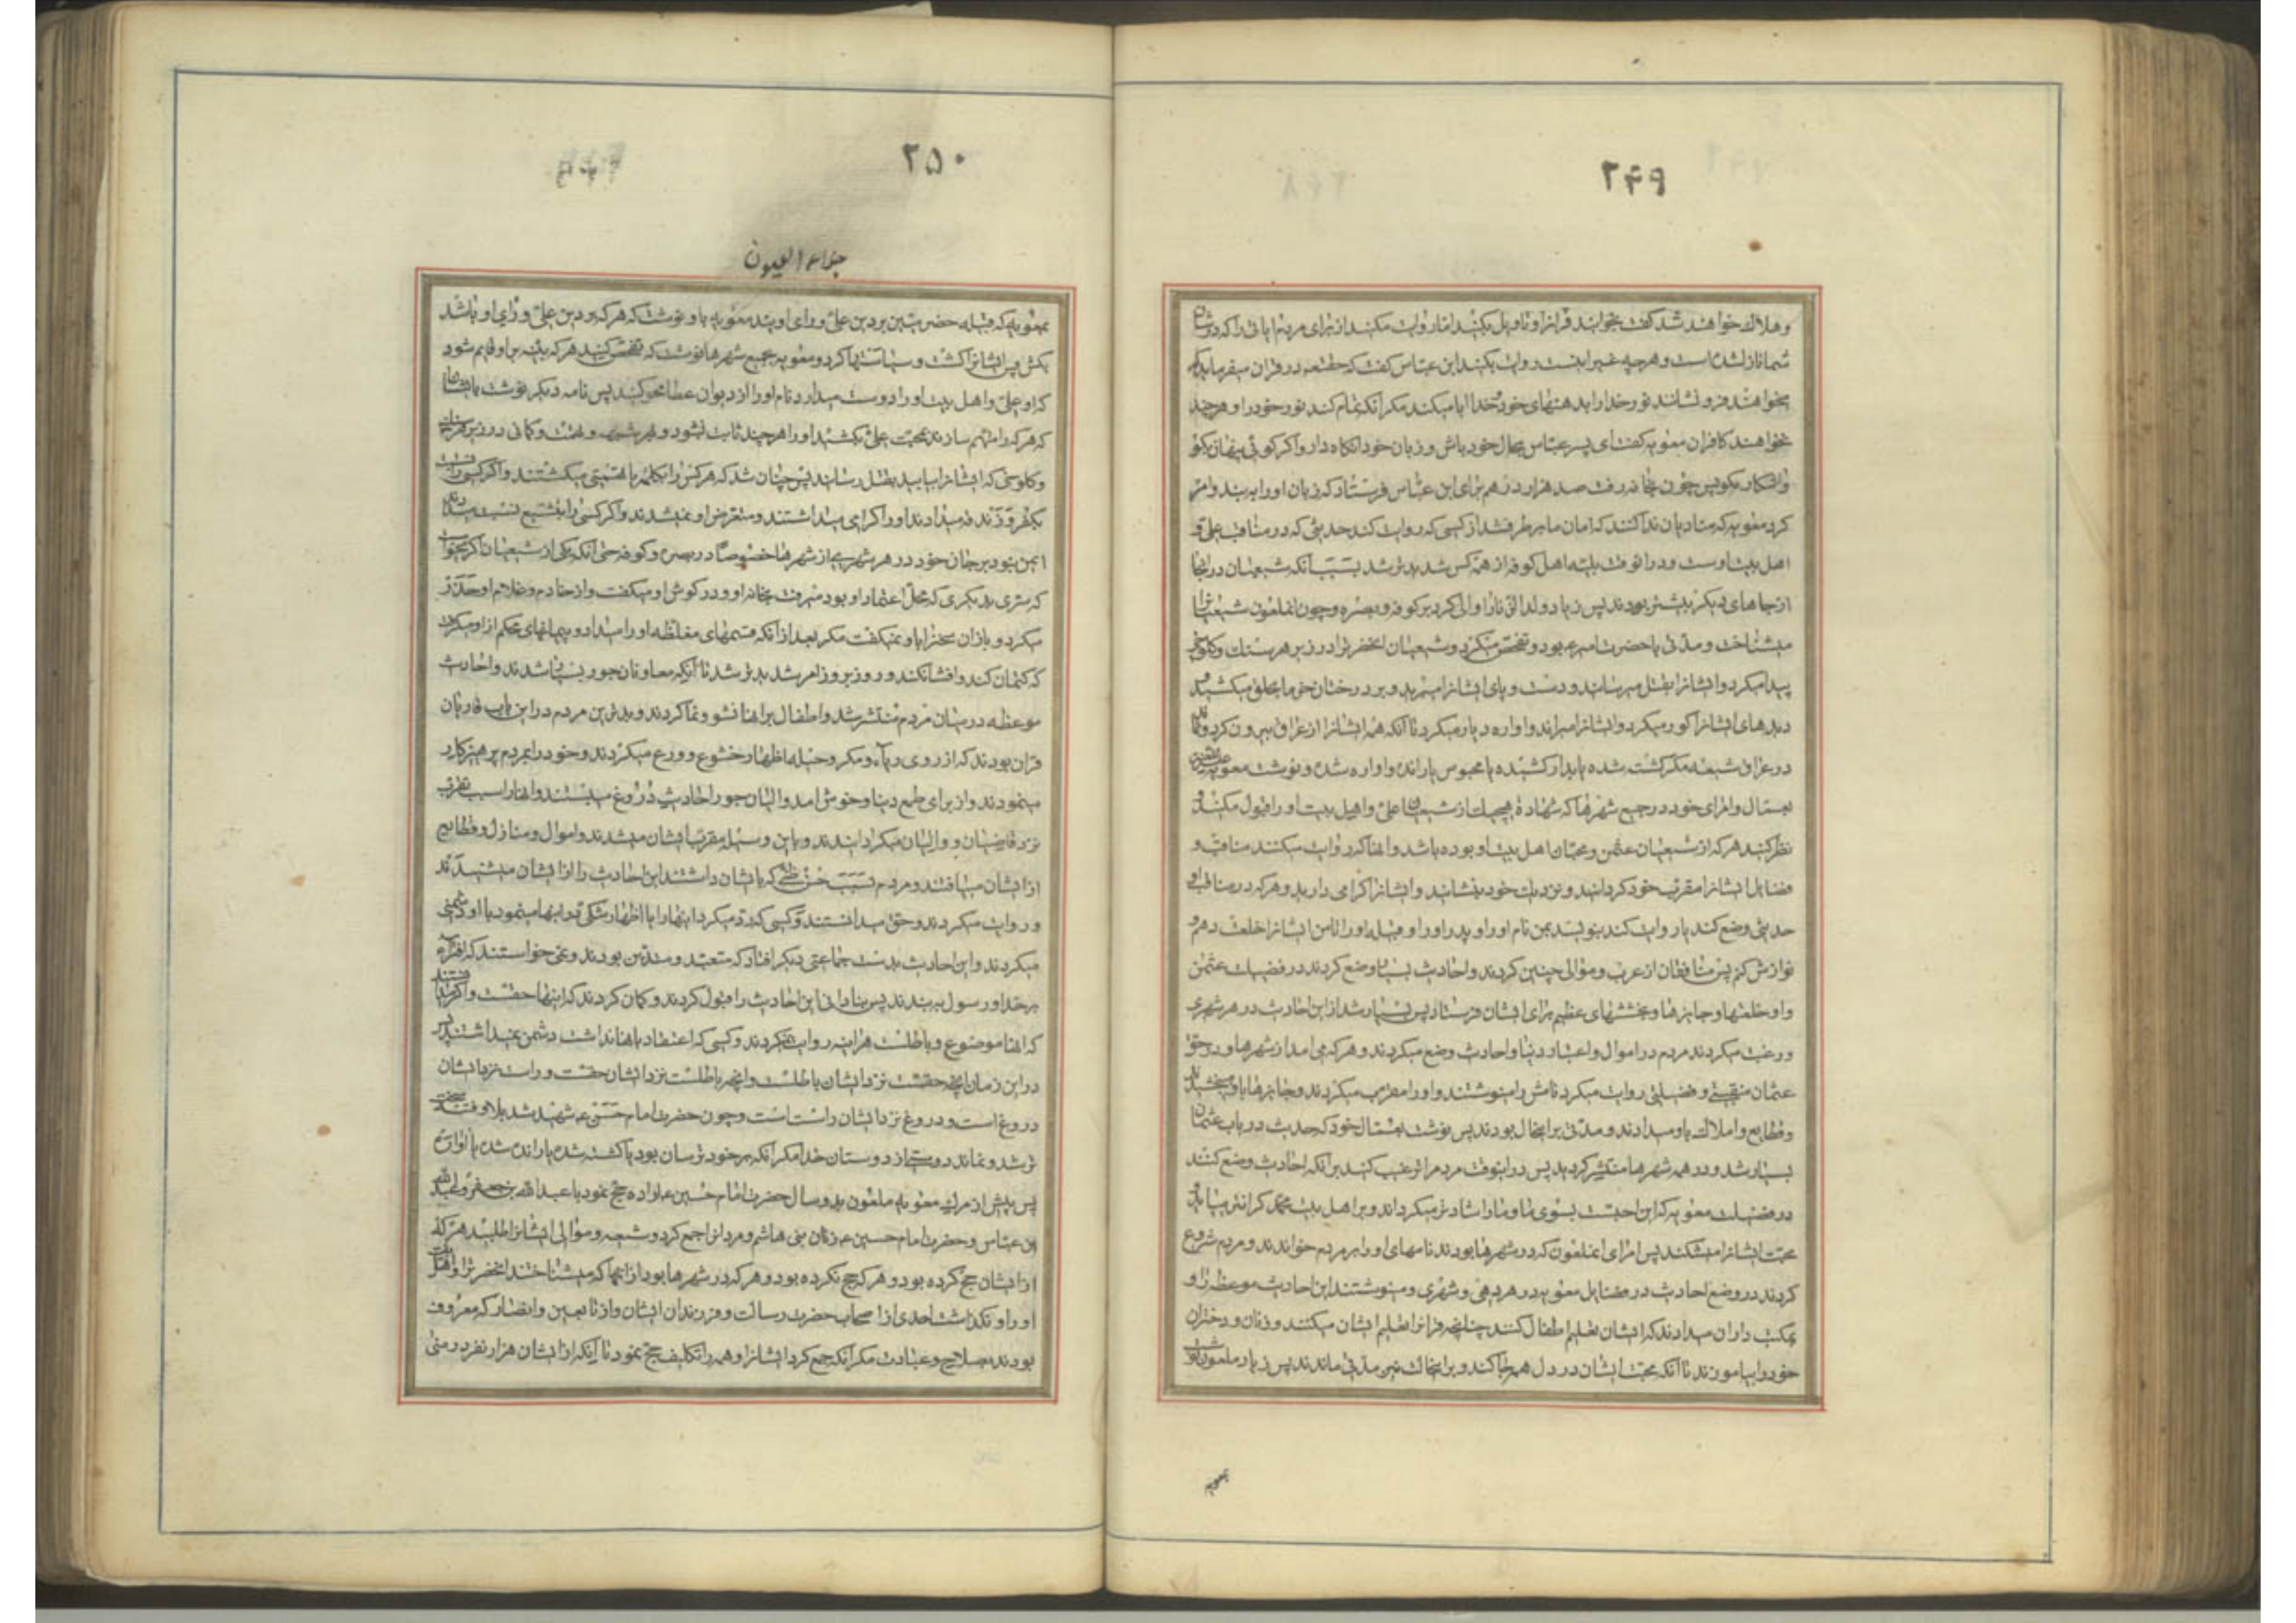 ۲۴۹
و هلاك خواهند شد كفت بخوانید قرانرا و تاویل بكنید اما روایت مكنید از برای مردم ایاتی را كه در شان
شما نازل شده است و هر چه غیر اینست روایت بكنید ابن عباس كفت كه حقتعه در قران میفرماید كه
میخواهند فرو نشانند نور خدا را بدهنهای خود و خدا ابا میكند مكر انكه تمام كند نور خود را و هر چند
نخواهند كافران معویه كفت ای پسر عباس بحال خود باش و زبان خود را نكاه دار و اكر كوئی پنهان بكو
و اشكار مكو پس چون بخانه رفت صد هزار درهم برای ابن عباس فرستاد كه زبان او را ببندد و امر
كرد معویه كه منادیان ندا كنند كه امان ما برطرف شد از كسی كه روایت كند حدیثی كه در مناقب علی و
اهل بیت اوست و در انوقت بلیه اهل كوفه از همه كس شدیدتر شد بسبب انكه شیعیان در انجا
از جاهای دیكر بیشتر بودند پس زیاد ولد الزنا را والی كرد بر كوفه و بصره و چون انملعون شیعیان را
میشناخت و مدتی با حضرت امیر ع بود و تفحص میكرد و شیعیان انحضرترا در زیر هر سنك و كلوخ
پیدا میكرد و ایشانرا بقتل میرسانید و دست و پای ایشانرا میبرید و بر درختان خرما بحلق میكشید و
دیدهای ایشانرا كور میكرد و ایشانرا میراند و اواره دیار میكرد تا انكه همه ایشانرا از عراق بیرون كرد و نماند
در عراق شیعه مكر كشته شده یا بدار كشیده یا محبوس یا رانده و اواره شده و نوشت معویه
بعمال و امرای خود در جمیع شهرها كه شهادة هیچیك از شیعیان علی و اهل بیت او را قبول مكنید و
نظر كنید هر كه از شیعیان عثمن و محبان اهل بیت او بوده باشد و انها كه روایت میكنند مناقب و
فضایل ایشانرا مقرب خود كردانید و نزدیك خود بنشانید و ایشانرا كرامی دارید و هر كه در مناقب او
حدیثی وضع كند یا روایت كند بنویسید بمن نام او را و پدر او را و قبیله او را تا من ایشانرا خلعت دهم و
نوازش كنم پس منافقان از عرب و موالی چنین كردند و احادیث بسیار وضع كردند در فضیلت عثمن
و او خلعتها و جایزها و بخششهای عظیم برای ایشان فرستاد پس بسیار شد از این احادیث در هر شهری
و رغبت میكردند مردم در اموال و اعتبار دنیا و احادیث وضع میكردند و هر كه می امد از شهرها و در حق
عثمان منقبتی و فضیلتی روایت میكرد نامش را مینوشتند و او را مقرب میكردند و جایزها باو میبخشیدند
و قطایع و املاك باو میدادند و مدتی بر اینحال بودند پس نوشت بعمال خود كه حدیث در باب عثمان
بسیار شد و در همه شهرها منتشر كردید پس در اینوقت مردم را ترغیب كنید بر انكه احادیث وضع كنند
در فضیلت معویه كه این احبست بسوی ما و ما را شادتر میكرداند و بر اهل بیت محمد كرانتر میاید و
محبت ایشانرا میشكند پس امرای انملعون كه در شهرها بودند نامهای او را بر مردم خواندند و مردم شروع
كردند در وضع احادیث در فضایل معویه در هر دهی و شهری و مینوشتند این احادیث موضوعه را و
بمكتب داران میدادند كه ایشان تعلیم اطفال كنند چنانچه قرانرا تعلیم ایشان میكنند و زنان و دختران
خود را بیاموزند تا انكه محبت ایشان در دل همه جا كند و بر اینحال نیز مدتی ماندند پس زیاد ملعون
بمعویه
۲۵۰
جلاء العیون
بمعویه كه قبیله حضرمیین بر دین علی و رای اویند معویه باو نوشت كه هر كه بر دین علی و رای او باشد
بكش پس ایشانرا كشت و سیاستها كرد و معویه بجمیع شهرها نوشت كه تفحص كنید هر كه بینه بر او قایم شود
كه او علی و اهل بیت او را دوست میدارد نام او را از دیوان عطا محو كنید پس نامه دیكر نوشت
كه هر كه را متهم سازند بمحبت علی بكشید او را هر چند ثابت نشود و بهر شبهه و تهمت و كمانی در زیر هر سنك
و كلوخی كه ایشانرا بیابید بقتل رسانید پس چنان شد كه هر كس را بكلمه یا تهمتی میكشتند و اكر كسی را
بكفر و زندقه میدادند او را كرامی میداشتند و متعرض او نمیشدند و اكر كسی را بتشیع نسبت میدادند
ایمن نبود بر جان خود در هر شهری از شهرها خصوصا در بصره و كوفه حتی انكه یكی از شیعیان اكر میخواست
كه سری بدیكری كه محل اعتماد او بود میرفت بخانه او و در كوش او میكفت و از خادم و غلام او حذر
میكرد و باز ان سخن را باو نمیكفت مكر بعد از انكه قسمهای مغلظه او را میداد و پیمانهای محكم از او میكرفت
كه كتمان كند و افشا نكند و روز بروز امر شدیدتر شد تا انكه معاونان جور بسیار شدند و احادیث
موعظه در میان مردم منتشر شد و اطفال بر انها نشو و نما كردند و بدترین مردم در این باب قاریان
قران بودند كه از روی ریاء و مكر و حیله اظهار خشوع و ورع میكردند و خود را بمردم پرهیزكار
مینمودند و از برای طمع دنیا و خوش امد والیان جور احادیث دروغ میبستند و انها را سبب تقرب
نزد قاضیان و والیان میكردانیدند و باین وسیله مقرب ایشان میشدند و اموال و منازل و قطایع
از ایشان مییافتند و مردم بسبب حسن ظنی كه بایشان داشتند این احادیث را از ایشان میشنیدند
و روایت میكردند و حق میدانستند و كسی كه رد میكرد اینها را یا اظهار شكی در اینها مینمود با او دشمنی
میكردند و این احادیث بدست جماعتی دیكر افتاد كه متعبد و متدین بودند و نمی خواستند كه افتراء
بر خدا و رسول ببندند پس بنادانی این احادیث را قبول كردند و كمان كردند كه اینها حقست و اكر میدانستند
كه انها موضوع و باطلست هراینه روایت نمیكردند و كسی كه اعتقاد بانها نداشت دشمن نمیداشتند پس
در این زمان انچه حقست نزد ایشان باطلست و انچه باطلست نزد ایشان حقست و راست نزد ایشان
دروغ است و دروغ نزد ایشان راست است و چون حضرت امام حسن ع شهید شد بلا و فتنه سخت
تر شد و نماند دوستی از دوستان خدا مكر انكه بر خود ترسان بود یا كشته شده یا رانده شده یا اواره
پس پیش از مرك معویه ملعون بدو سال حضرت امام حسین ع اراده حج نمود با عبد الله بن جعفر و عبد الله
ابن عباس و حضرت امام حسین ع زنان بنی هاشم و مردانرا جمع كرد و شیعه و موالی ایشانرا طلبید هر كه
از ایشان حج كرده بود و هر كه حج نكرده بود و هر كه در شهرها بود از انها كه میشناختند انحضرترا و اهل بیت
او را و نكذاشت احدی از اصحاب حضرت رسالت و فرزندان ایشان و از تابعین و انصار كه معروف
بودند بصلاح و عبادت مكر انكه جمع كرد ایشانرا و همه را تكلیف حج نمود تا انكه از ایشان هزار نفر در منی